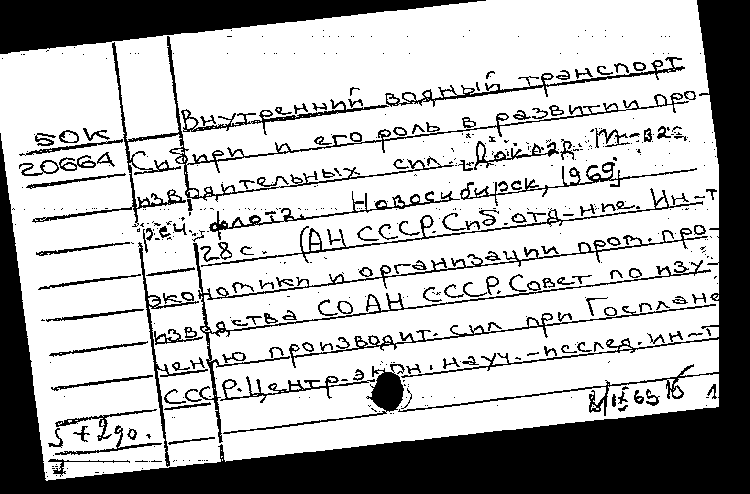 Внутренний водный транспорт
50К
20664
Сибири и его роль в развитии про-
изводительных сил. Доклад. М-ва
реч. флота. Новосибирск, 1969.
28 с. (АН СССР. Сиб. отд-ние. Ин-т
экономики и организации пром. про-
изводства СО АН СССР. Совет по изу-
чению производит. сил при Госплане
СССР. Центр. экон. науч.-исслед. ин-т
5+2до.